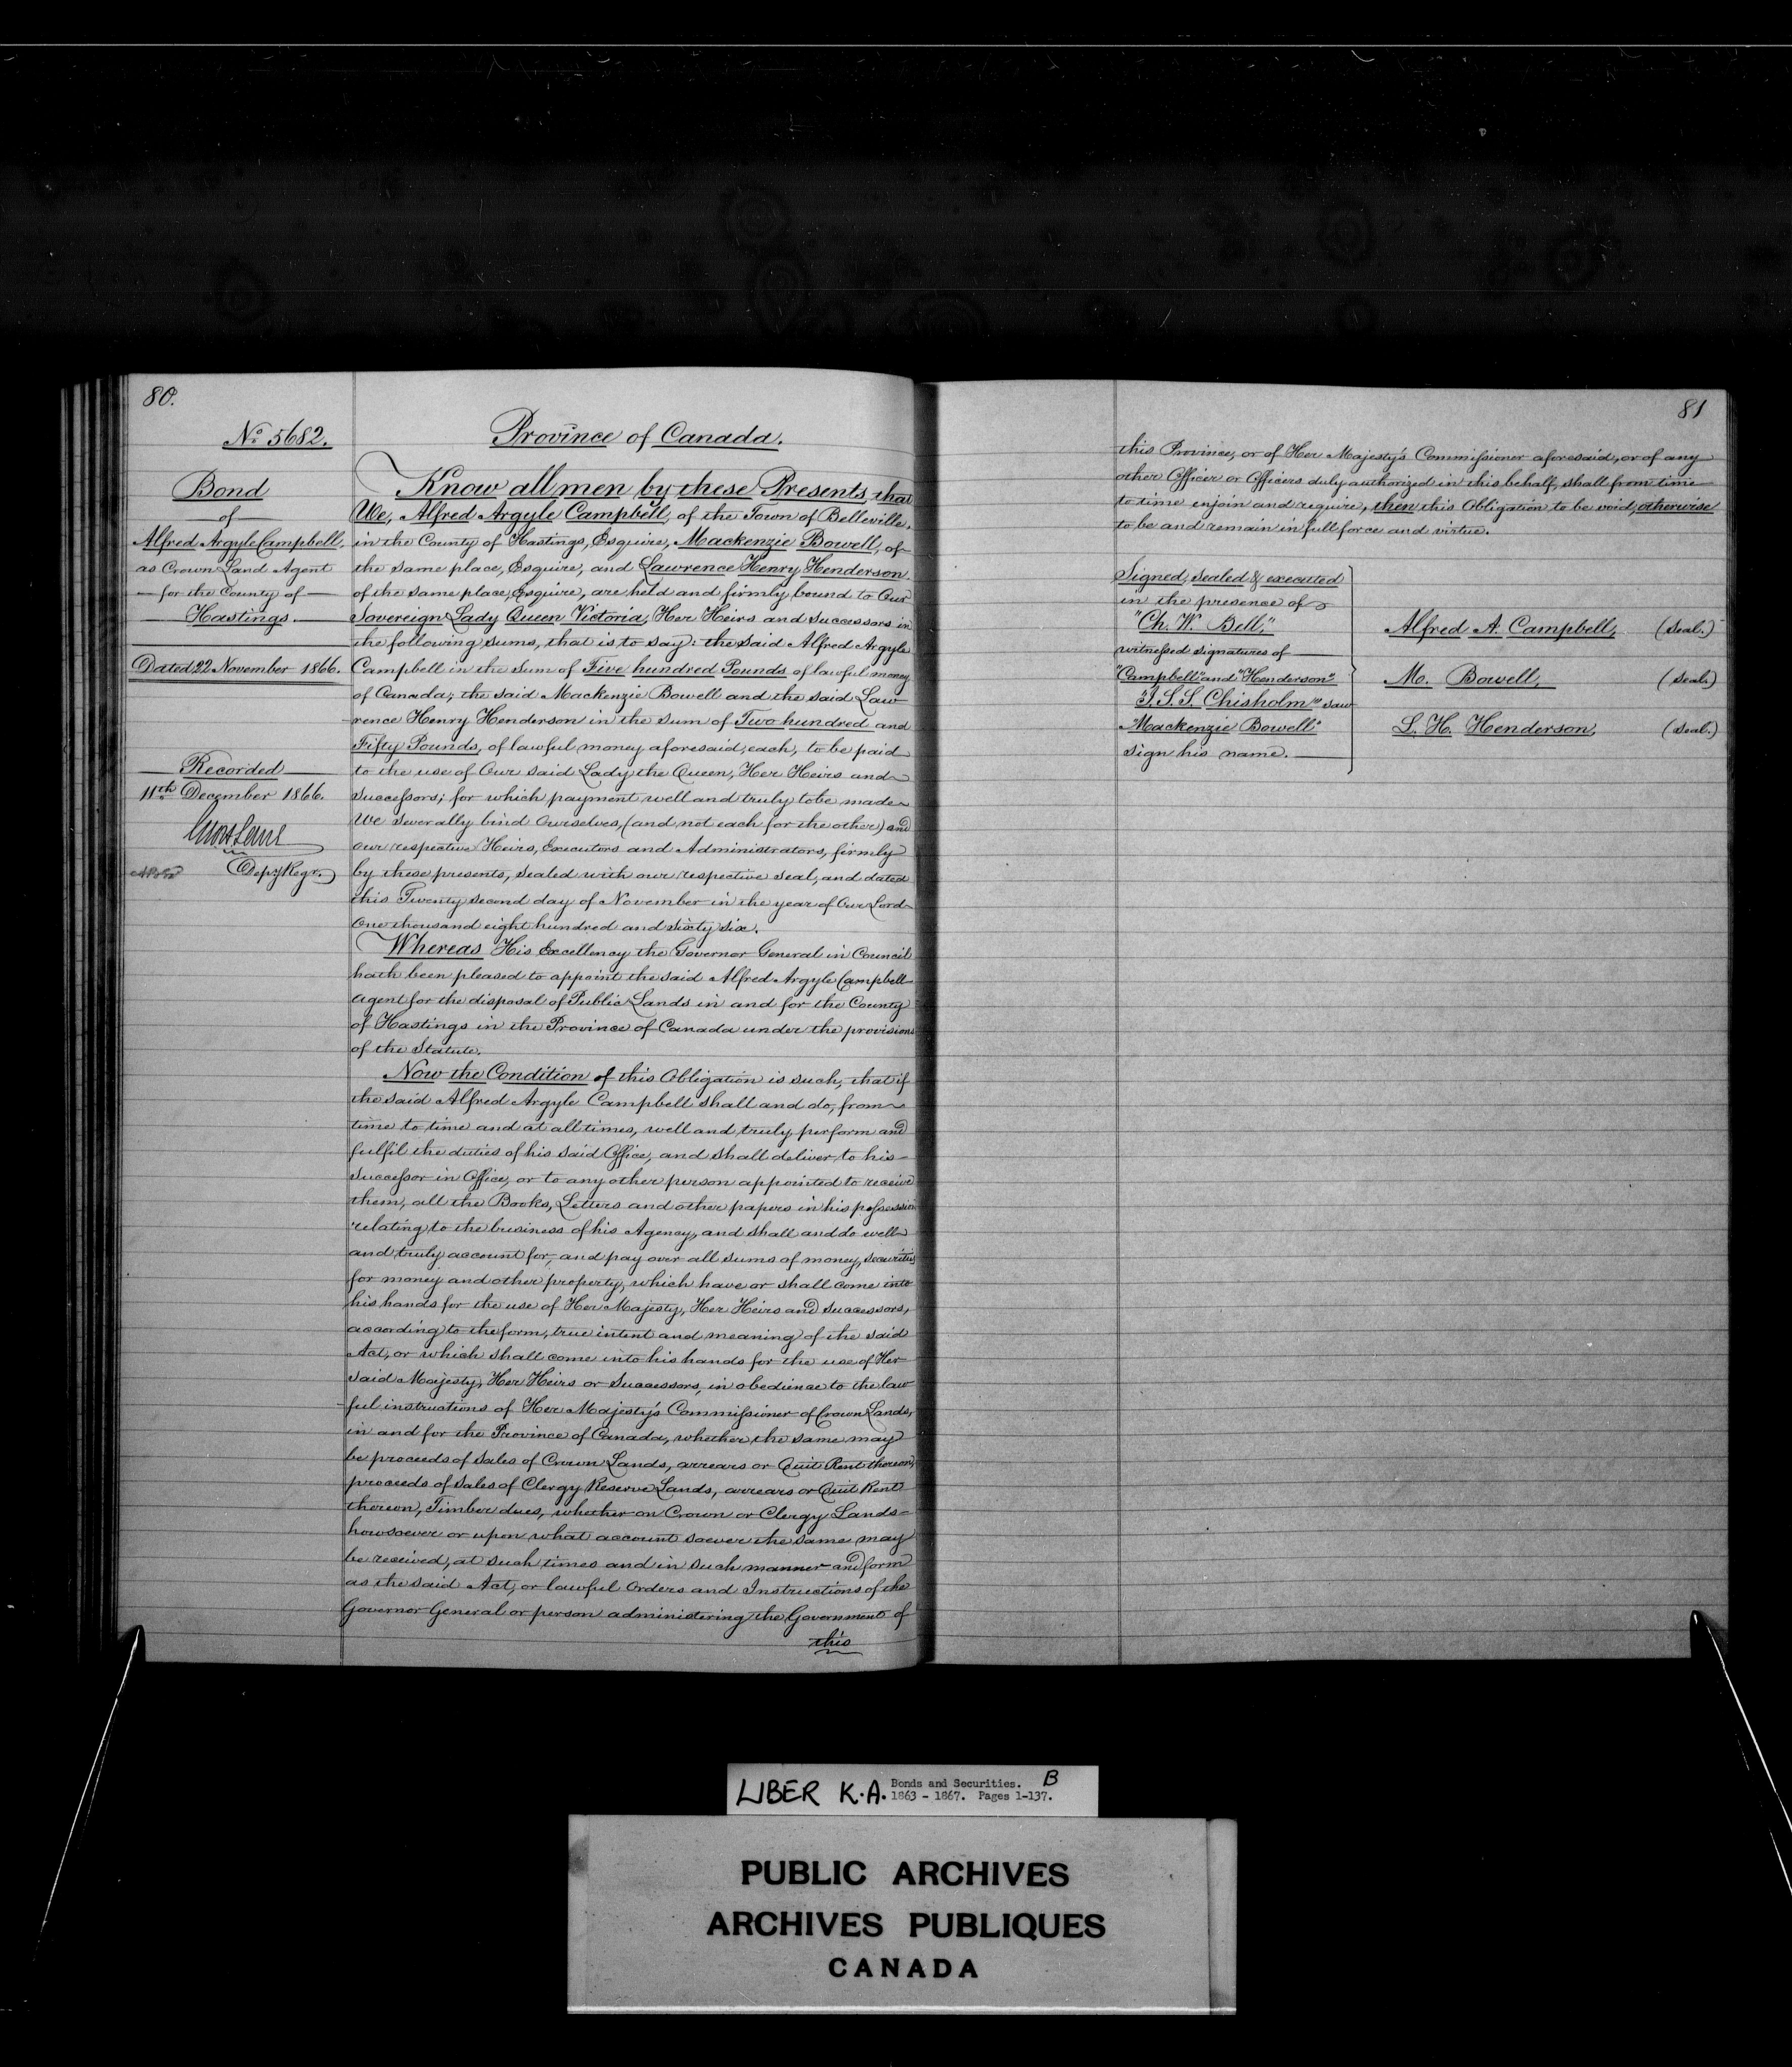 80.
No. 5682.
Bond
of
Alfred Argyle Campbell,
as Crown Land Agent
for the County of
Hastings.
Dated 22 November 1866.
Recorded
11th December 1866.
Depy Regr.
Province of Canada.
Know all men by these Presents, that
We, Alfred Argyle Campbell, of the Town of Belleville,
in the County of Hastings, Esquire, Mackenzie Bowell, of
the same place, Esquire, and Lawrence Henry Henderson
of the same place, Esquire, are held and firmly bound to Our
Sovereign Lady Queen Victoria, Her Heirs and Successors in
the following sums, that is to say: the said Alfred Argyle
Campbell in the Sum of Five hundred Pounds of lawful money
of Canada; the said Mackenzie Bowell and the said Law-
rence Henry Henderson in the sum of Two hundred and
Fifty Pounds, of lawful money aforesaid, each, to be paid
to the use of Our said Lady the Queen, Her Heirs and
Successors; for which payment well and truly to be made
We severally bind Ourselves, (and not each for the other) and
our respective Heirs, Executors and Administrators, firmly
by these presents, sealed with our respective seal, and dated
this Twenty second day of November in the year of Our Lord
One thousand eight hundred and sixty six.
Whereas His Excellency the Governor General in Council
hath been pleased to appoint the said Alfred Argyle Campbell
agent for the disposal of Public Lands in and for the County
of Hastings in the Province of Canada under the provisions
of the Statute.
Now the Condition of this Obligation is such, that if
the said Alfred Argyle Campbell shall and do, from
time to time and at all times, well and truly perform and
fulfil the duties of his said Office, and shall deliver to his
Successor in Office, or to any other person appointed to receive
them, all the Books, Letters and other papers in his possession
relating to the business of his Agency, and shall and do well
and truly account for, and pay over all sums of money, securities
for money and other property, which have or shall come into
his hands for the use of Her Majesty, Her Heirs and Successors,
according to the form, true intent and meaning of the said
Act, or which shall come into his hands for the use of Her
said Majesty, Her Heirs or Successors, in obedience to the law-
ful instructions of Her Majesty's Commissioner of Crown Lands,
in and for the Province of Canada, whether the same may
be proceeds of sales of Crown Lands, arrears or Quit Rent thereon,
proceeds of sales of Clergy Reserve Lands, arrears or Quit Rent
thereon, Timber dues, whether on Crown or Clergy Lands
howsoever or upon what account soever the same may
be received, at such times and in such manner and form
as the said Act, or lawful Orders and Instructions of the
Governor General or person administering the Government of
this
81
this Province, or of Her Majesty's Commissioner aforesaid, or of any
other Officer or Officers duly authorized in this behalf, shall from time
to time enjoin and require, then this Obligation to be void, otherwise
to be and remain in full force and virtue.
Signed, sealed & executed
in the presence of
"Ch. W. Bell,"
witnessed signatures of
"Campbell" and "Henderson"
"J. S. S. Chisholm" saw
"Mackenzie Bowell"
sign his name.
Alfred A. Campbell, (Seal.)
M. Bowell, (Seal.)
L. H. Henderson, (Seal.)
LIBER K.A. Bonds and Securities. B
1863 - 1867. Pages 1-137.
PUBLIC ARCHIVES
ARCHIVES PUBLIQUES
CANADA